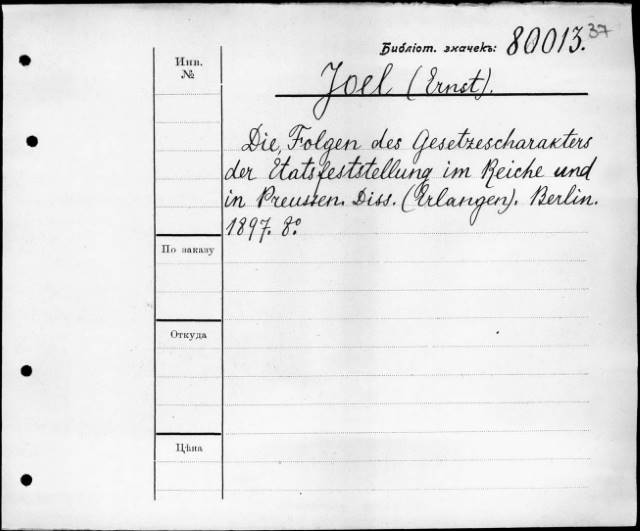 Библіот. значекъ: 80013. 37
Инв.
№
Joel (Ernst).
Die Folgen des Gesetzescharakters
der Etatsfeststellung im Reiche und
in Preussen. Diss. (Erlangen). Berlin.
1897. 8.°
По заказу
Откуда
Цѣна